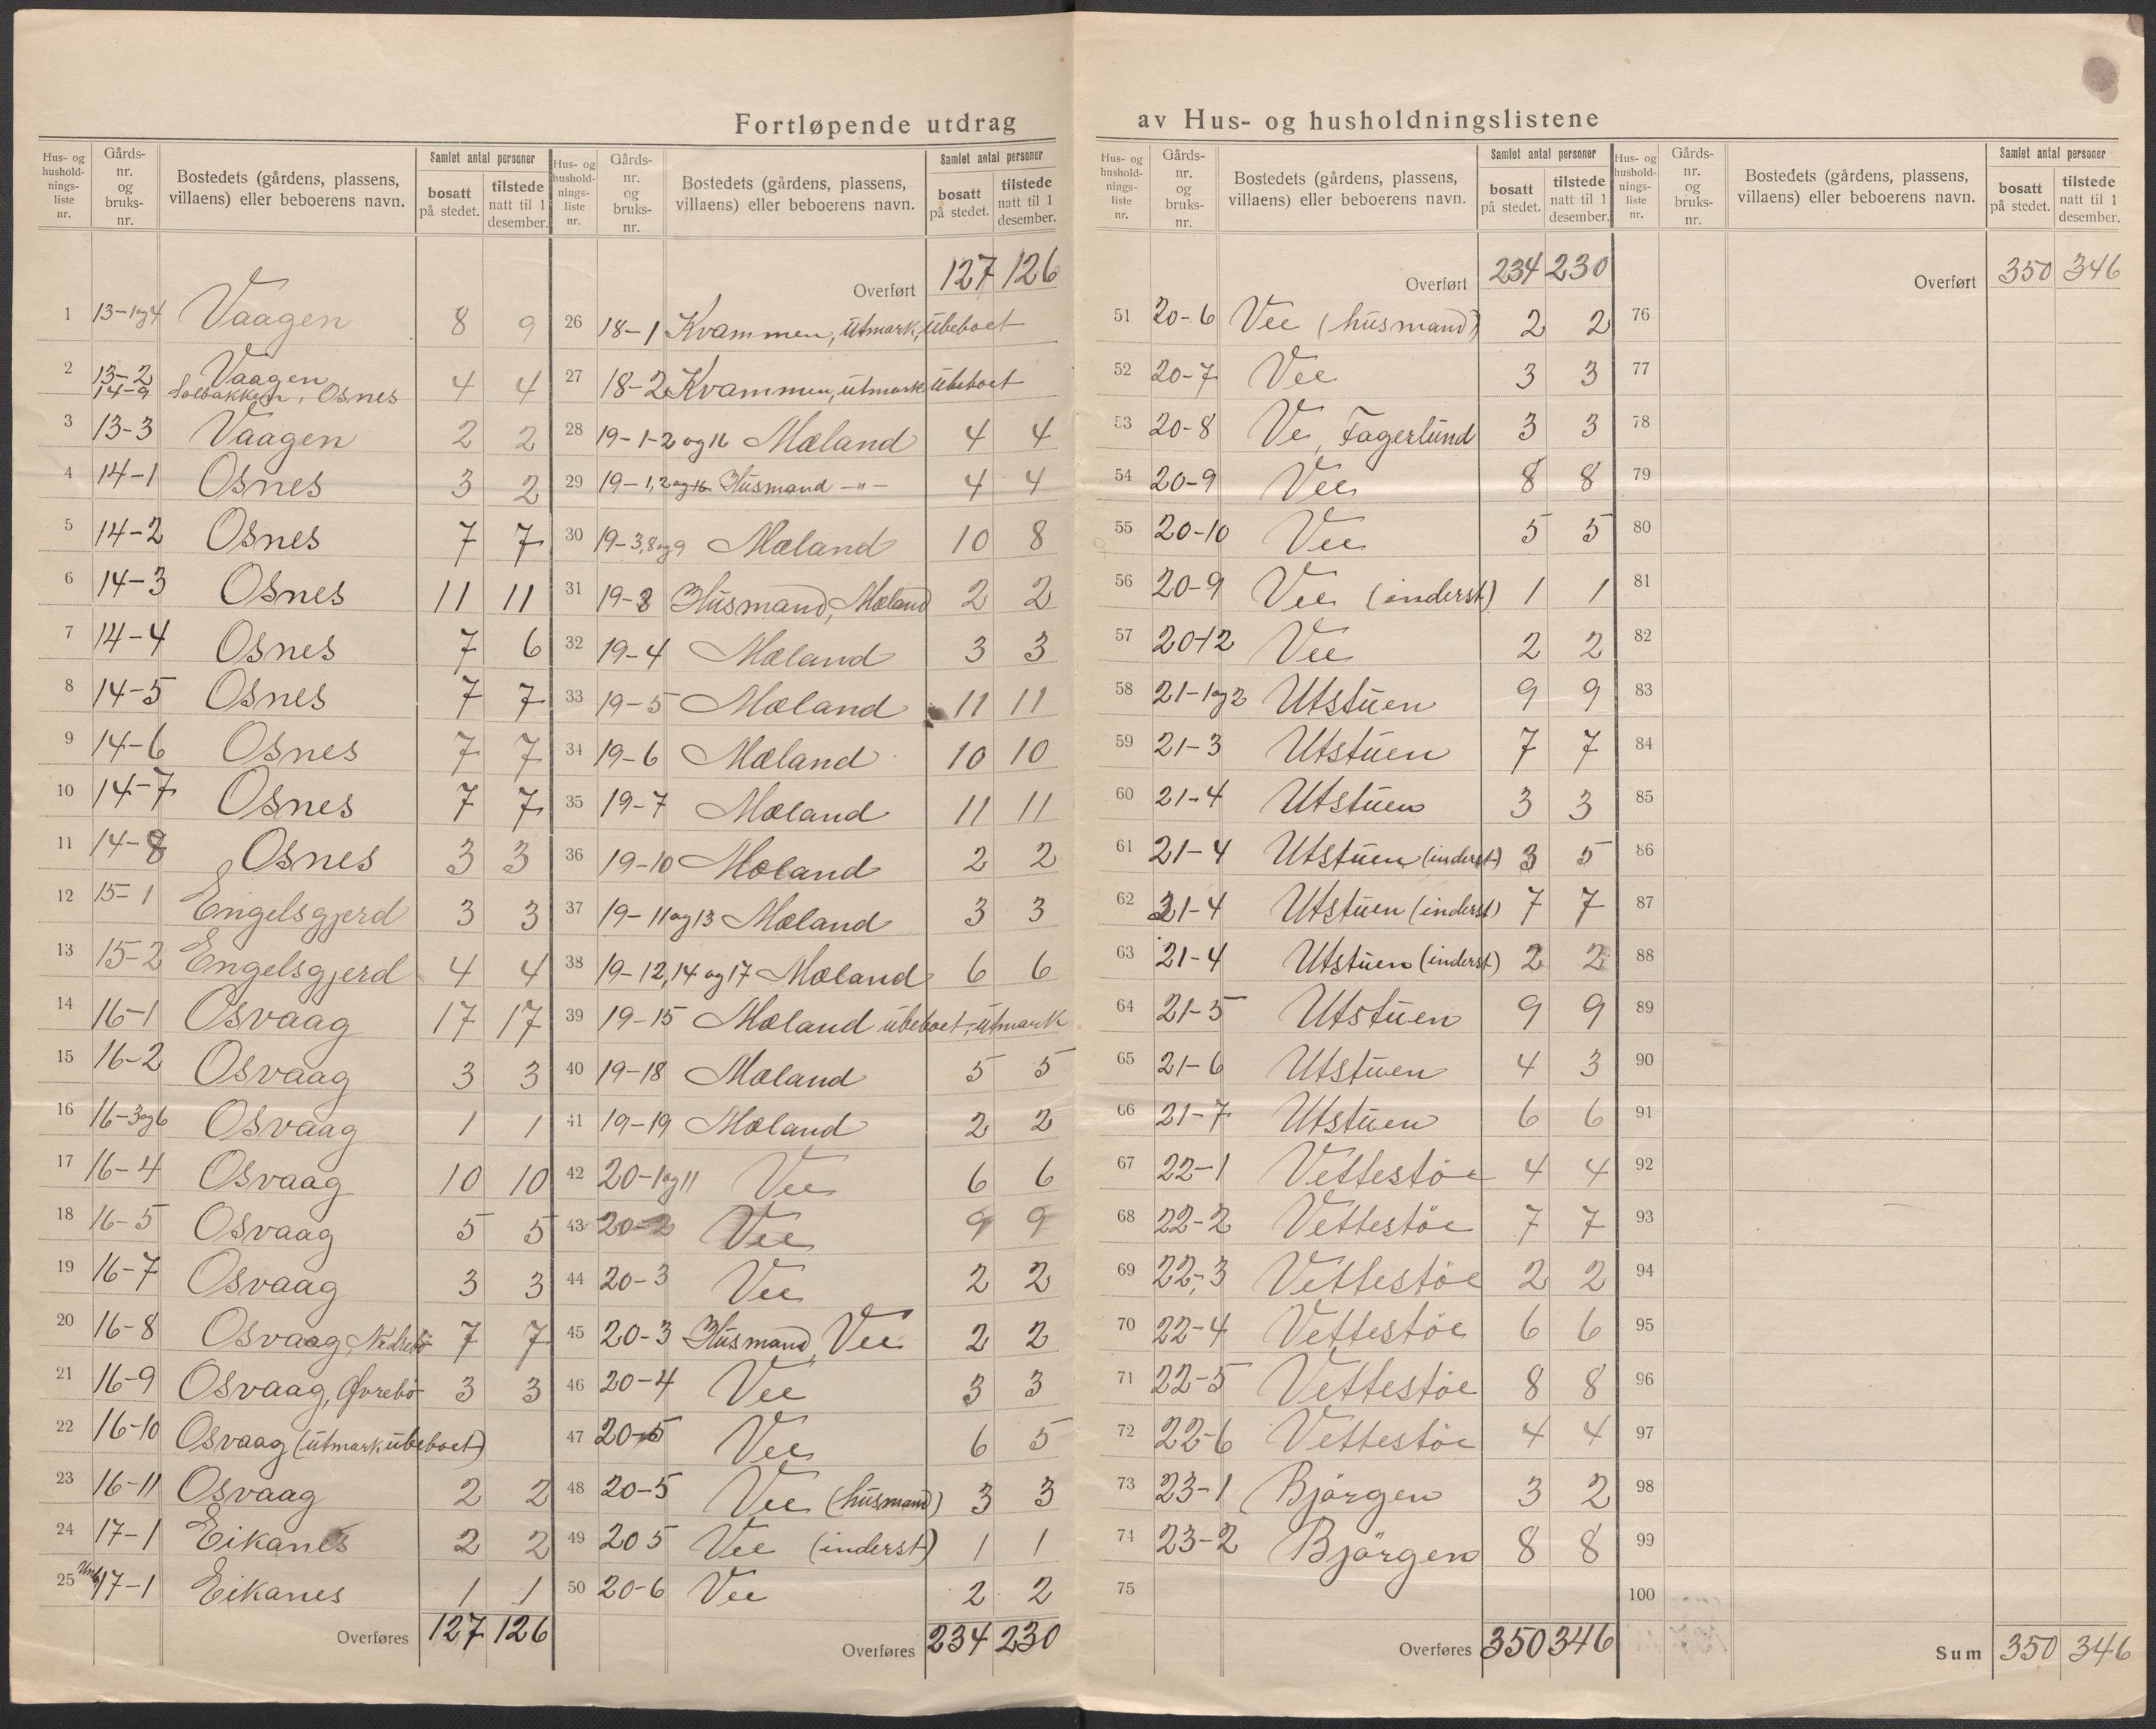 Fortløpende utdrag av Hus- og husholdningslistene
Hus- og hushold-nings-liste nr. | Gårds-nr. og bruks-nr. | Bostedets (gårdens, plassens, villaens) eller beboerens navn. | Samlet antal personer | bosatt på stedet. | tilstede natt til 1 desember.
1 13-1og4 Vaagen 8 9
2 13-2 Vaagen
14-9 Solbakken, Osnes 4 4
3 13-3 Vaagen 2 2
4 14-1 Osnes 3 2
5 14-2 Osnes 7 7
6 14-3 Osnes 11 11
7 14-4 Osnes 7 6
8 14-5 Osnes 7 7
9 14-6 Osnes 7 7
10 14-7 Osnes 7 7
11 14-8 Osnes 3 3
12 15-1 Engelsgjerd 3 3
13 15-2 Engelsgjerd 4 4
14 16-1 Osvaag 17 17
15 16-2 Osvaag 3 3
16 16-3og6 Osvaag 1 1
17 16-4 Osvaag 10 10
18 16-5 Osvaag 5 5
19 16-7 Osvaag 3 3
20 16-8 Osvaag, Nedrebö 7 7
21 16-9 Osvaag, Øvrebö 3 3
22 16-10 Osvaag (utmark ubeboet)
23 16-11 Osvaag 2 2
24 17-1 Eikanes 2 2
25 17-1 Eikanes 1 1
Overføres 127 126
Hus- og hushold-nings-liste nr. | Gårds-nr. og bruks-nr. | Bostedets (gårdens, plassens, villaens) eller beboerens navn. | Samlet antal personer | bosatt på stedet. | tilstede natt til 1 desember.
Overført 127 126
26 18-1 Kvammen, utmark, ubeboet
27 18-2 Kvammen, utmark ubeboet
28 19-1-2 og 16 Mæland 4 4
29 19-1,2 og 16 Husmand -"- 4 4
30 19-3,8og9 Mæland 10 8
31 19-3 Husmand, Mæland 2 2
32 19-4 Mæland 3 3
33 19-5 Mæland 11 11
34 19-6 Mæland 10 10
35 19-7 Mæland 11 11
36 19-10 Mæland 2 2
37 19-11og13 Mæland 3 3
38 19-12,14 og 17 Mæland 6 6
39 19-15 Mæland ubeboet, utmark
40 19-18 Mæland 5 5
41 19-19 Mæland 2 2
42 20-1og11 Vee 6 6
43 20-2 Vee 9 9
44 20-3 Vee 2 2
45 20-3 Husmand, Vee 2 2
46 20-4 Vee 3 3
47 20-5 Vee 6 5
48 20-5 Vee (husmand) 3 3
49 20 5 Vee (inderst) 1 1
50 20-6 Vee 2 2
Overføres 234 230
Hus- og hushold-nings-liste nr. | Gårds-nr. og bruks-nr. | Bostedets (gårdens, plassens, villaens) eller beboerens navn. | Samlet antal personer | bosatt på stedet. | tilstede natt til 1 desember.
Overført 234 230
51 20-6 Vee (husmand) 2 2
52 20-7 Vee 3 3
53 20-8 Ve, Fagerlund 3 3
54 20-9 Vee 8 8
55 20-10 Vee 5 5
56 20-9 Vee (inderst) 1 1
57 20-12 Vee 2 2
58 21-1og2 Utstuen 9 9
59 21-3 Utstuen 7 7
60 21-4 Utstuen 3 3
61 21-4 Utstuen (inderst) 3 5
62 21-4 Utstuen (inderst) 7 7
63 21-4 Utstuen (inderst) 2 2
64 21-5 Utstuen 9 9
65 21-6 Utstuen 4 3
66 21-7 Utstuen 6 6
67 22-1 Vettestöe 4 4
68 22-2 Vettestöe 7 7
69 22-3 Vettestöe 2 2
70 22-4 Vettestöe 6 6
71 22-5 Vettestöe 8 8
72 22-6 Vettestöe 4 4
73 23-1 Björgen 3 2
74 23-2 Björgen 8 8
75
Overføres 350 346
Hus- og hushold-nings-liste nr. | Gårds-nr. og bruks-nr. | Bostedets (gårdens, plassens, villaens) eller beboerens navn. | Samlet antal personer | bosatt på stedet. | tilstede natt til 1 desember.
Overført 350 346
76
77
78
79
80
81
82
83
84
85
86
87
88
89
90
91
92
93
94
95
96
97
98
99
100
Sum 350 346